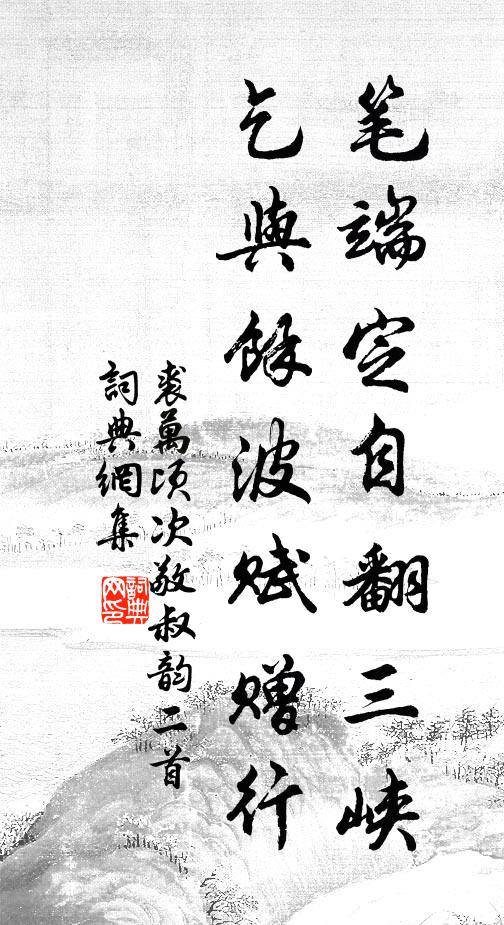 笔端定自翻三峡
乞與餘波赋赠行
裘萬頃次敬叔韵二首
詞典網集
詞典网印